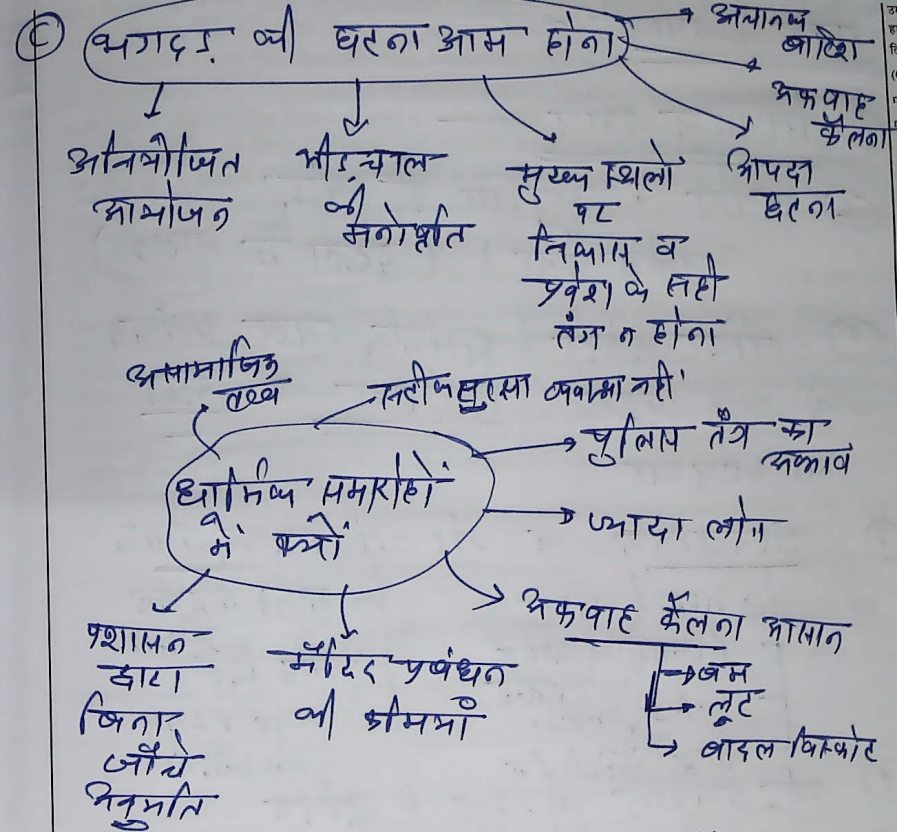 (C) भगदड़ की घटना आम होना
→ अचानक
बारिश
→ अफवाह
फैलना
अनियोजित
आयोजन
भीड़चाल
की
मनोवृति
मुख्य स्थलों
पर
निकास व
प्रवेश के सही
तंत्र न होना
आपदा
घटना
असामाजिक
तत्व
सटीक सुरक्षा व्यवस्था नहीं
धार्मिक समारोहों
में क्यों
→ पुलिस तंत्र का
अभाव
→ ज्यादा लोग
अफवाह फैलना आसान
→ बम
→ लूट
→ बादल विस्फोट
प्रशासन
द्वारा
बिना
जाँचे
अनुमति
मंदिर प्रबंधन
की कमियाँ